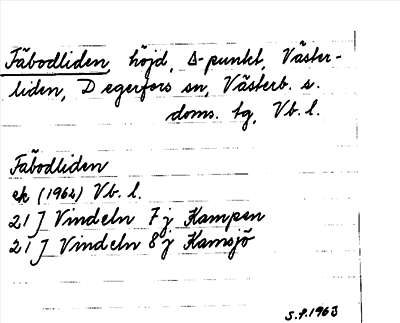 Fäbodliden, höjd, Δ-punkt, Väster-
liden, Degerfors sn, Västerb. s.
doms. tg, Vb. l.
Fäbodliden
ek (1964) Vb. l.
21 J Vindeln 7j Kampen
21 J Vindeln 8j Kamsjö
S.f.1963